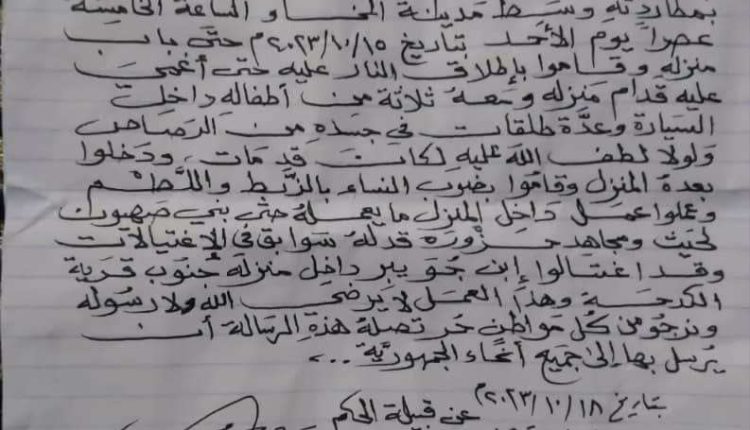 بمطاردته وسط مدينة المخاء الساعة الخامسة
عصراً يوم الأحد بتاريخ ٢٠٢٣/١٠/١٥م حتى باب
منزله وقاموا بإطلاق النار عليه حتى أغمي
عليه قدام منزله ومعه ثلاثة من أطفاله داخل
السيارة وعدة طلقات في جسده من الرصاص
ولولا لطف الله عليه لكانت قد مات ودخلوا
بعده المنزل وقاموا بضرب النساء بالزبط واللطم
وعملوا عمل داخل المنزل ما يعمله حتى بني صهيون
لحيث ومجاهد حزوره قد له سوابق في الإغتيالات
وقد اغتالوا إبن جوبير داخل منزله جنوب قرية
الكدحة وهذا العمل لا يرضي الله ولا رسوله
ونرجو من كل مواطن حر تصله هذه الرسالة أن
يرسل بها إلى جميع أنحاء الجمهورية ...
بتاريخ ٢٠٢٣/١٠/١٨م
عن قبيلة الحكم